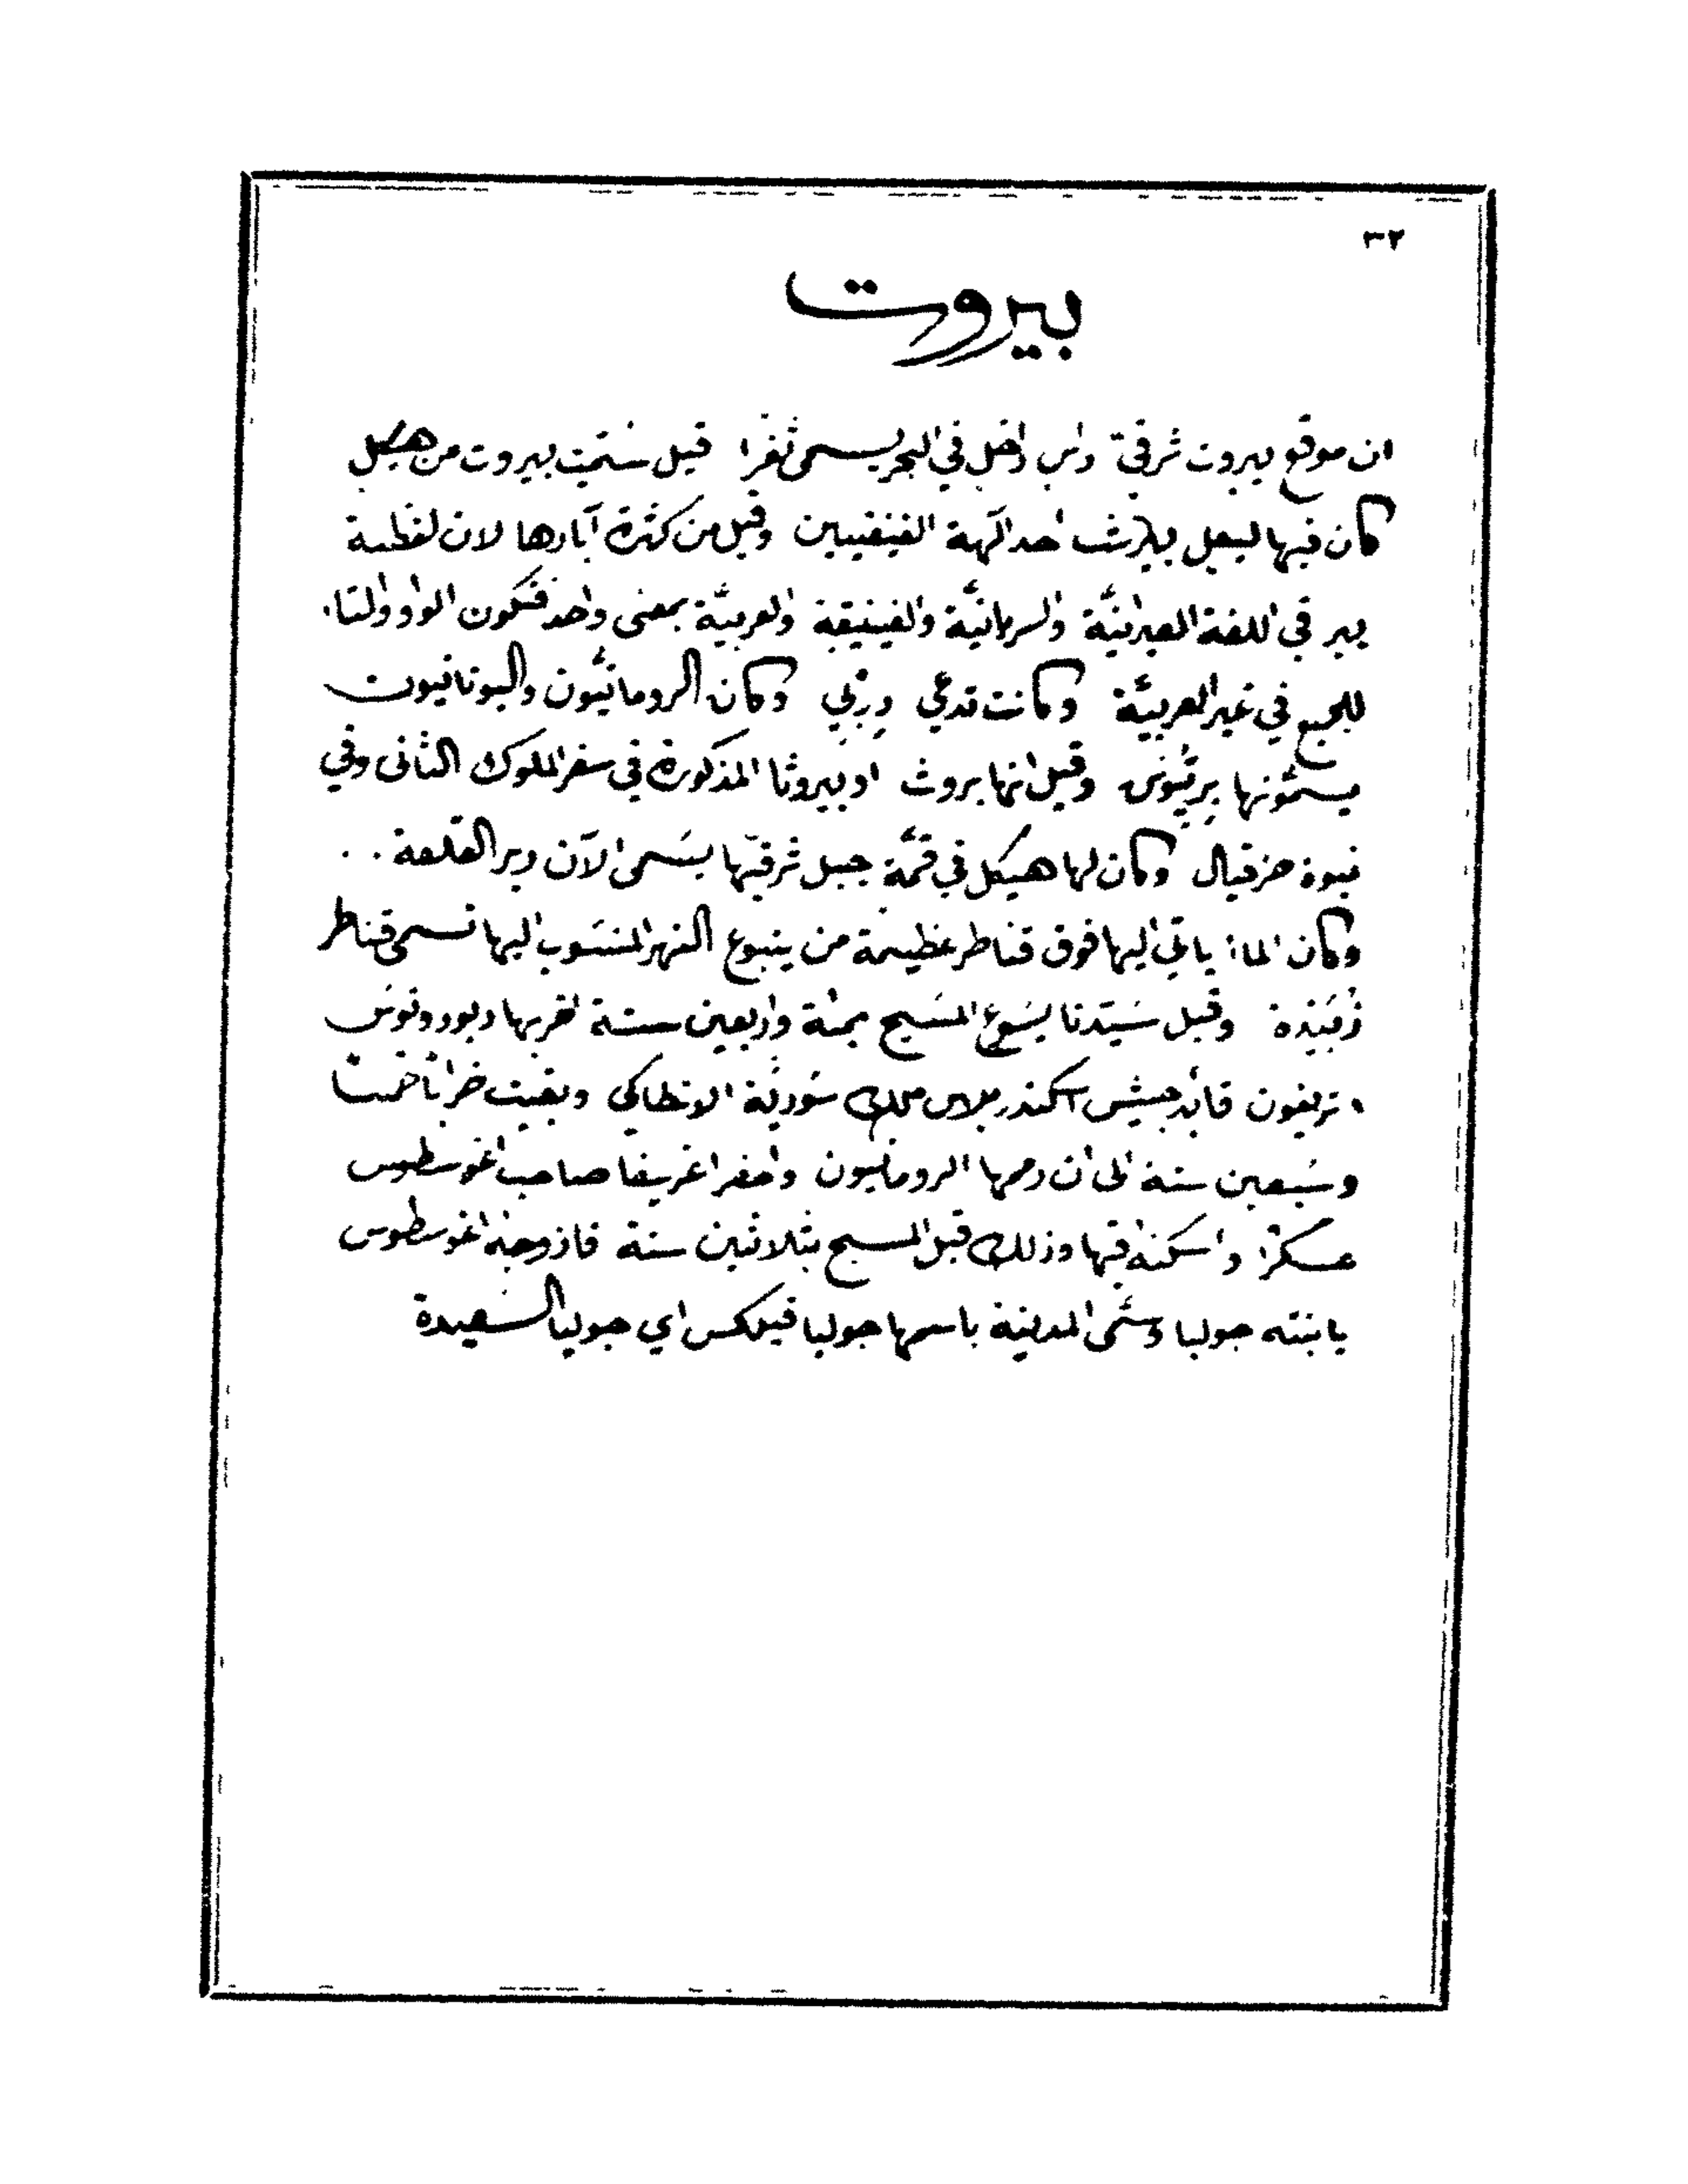 ٣٢
بيروت
ان موقع بيروت شرقيّ راس داخل في البحر يسمى ثغرا قيل سُمّيت بيروت من هيكل
كان فيها لبعل بيريث احد الهة الفينيقيين وقيل من كثرة آبارها لان لفظة
بير في اللغة العبرانيَّة والسريانيَّة والفينيقية والعربيَّة بمعنى واحد فتكون الواو والتاء
للجمع في غير العربيَّة وكانت تدعي دربي وكان الرومانيّون واليونانيون
يسمّونها بريتوس وقيل انها بروث او بيروثا المذكورة في سفر الملوك الثاني وفي
نبوة حزقيال وكان لها هيكل في قمَّة جبل شرقيّها يسَمى الآن دير القلعة . .
وكان الماء ياتي اليها فوق قناطر عظيمة من ينبوع النهر المنسَوب اليها تسمى قناطر
زُبَيْدة وقبل سَيّدنا يسَوع المسَيح بمئة واربعين سنة اخربها ديودوتوس
تريفون قائد جيش اسكندر بلاس ملك سُوريَّة الانطاكي وبقيت خرابًا خمسًا
وسَبعين سنة الى ان رممها الرومانيون واحضر اغريفا صاحب اغوسطوس
عسكرًا واسكنه فيها وذلك قبل المسيح بثلاثين سنة فازوجه اغوسطوس
بابنته جوليا وسَمّى المدينة باسمها جوليا فيلكس اي جوليا السَعيدة